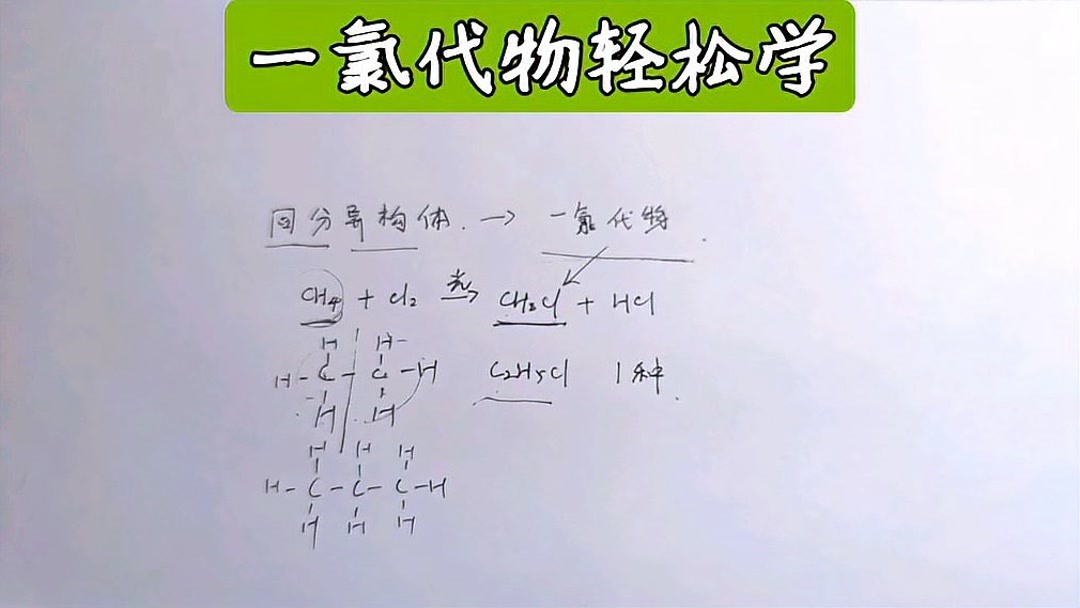 一氯代物轻松学
同分异构体. → 一氯代物.
CH4 + Cl2 光→ CH3Cl + HCl
H H
H-C-C-H C2H5Cl 1种.
H H
H H H
H-C-C-C-H
H H H